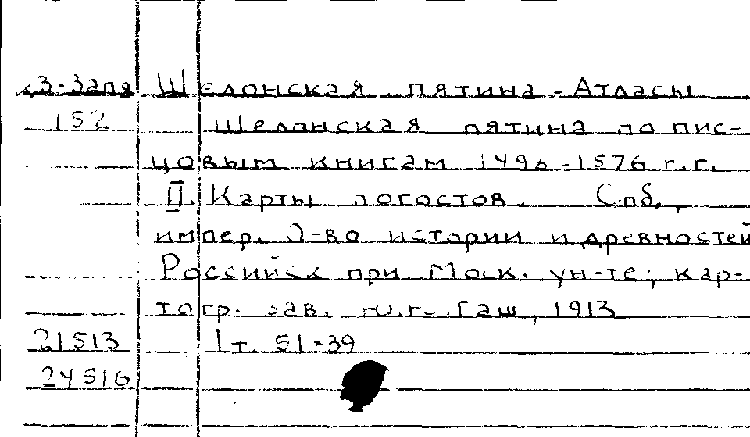 К3-Запя Шелонская пятина - Атласы
152 Шелонская пятина по пис-
цовым книгам 1498-1576 г.г.
II. Карты погостов. Спб.,
импер. О-во истории и древностей
Российск при Моск. ун-те; кар-
тогр. зав. Ю.Г. Гаш, 1913
21513 1 т. 51×39
24516